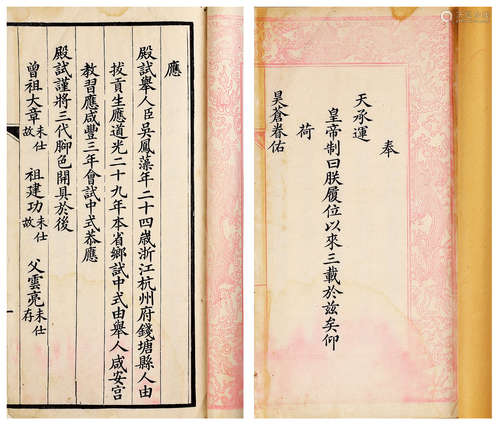 應
殿試舉人臣吳鳳藻年二十四歲浙江杭州府錢塘縣人由
拔貢生應道光二十九年本省鄉試中式由舉人咸安宮
教習應咸豐三年會試中式恭應
殿試謹將三代腳色開具於後
曾祖大章未仕故 祖建功未仕故 父雲亮未仕存
奉
天承運
皇帝制曰朕履位以來三載於茲矣仰
荷
昊蒼眷佑